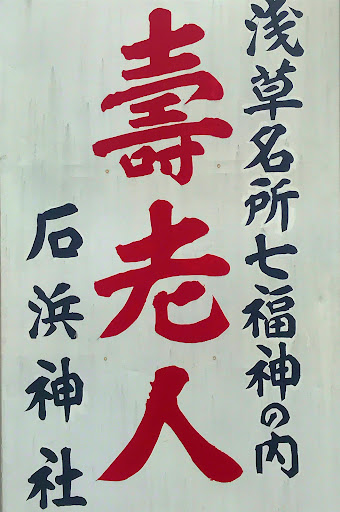 浅草名所七福神の内
壽老人
石浜神社